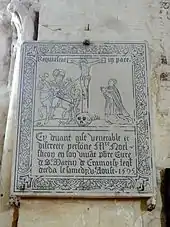 Requiescat in pace.
Cy devant gist venerable et
discrete persone Mre Noel
en son vivāt pbre Curé
de St Martin de Cramoisy leql
deceda le samedy d'Aoust 1595